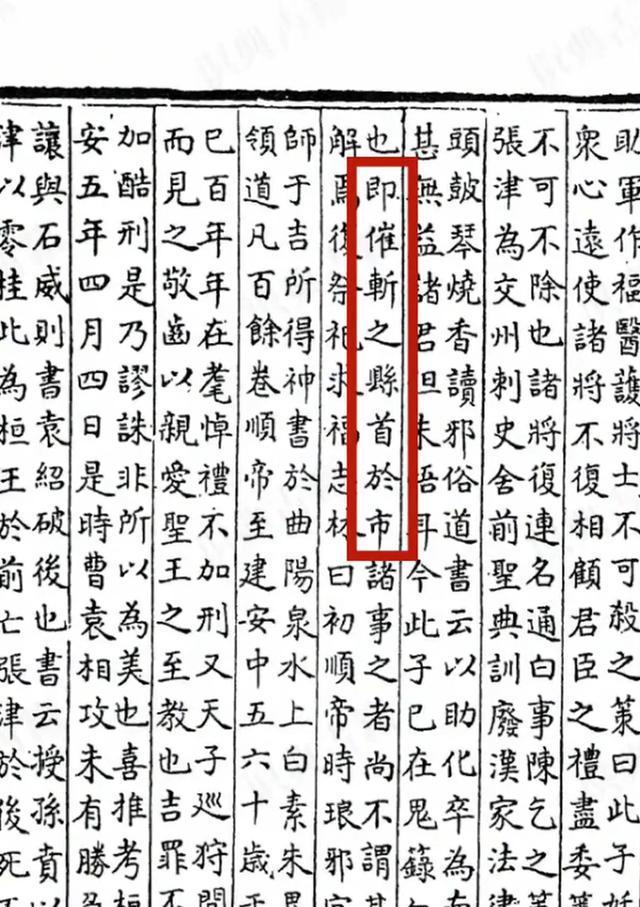 助軍作福醫護將士不可殺之策曰此子妖
衆心遠使諸將不復相顧君臣之禮盡委
不可不除也諸將復連名通白事陳乞之策
張津為交州刺史舍前聖典訓廢漢家法律
頭皷琴燒香讀邪俗道書云以助化卒為南
甚無益諸君但未悟耳今此子已在鬼籙
也即催斬之縣首於市諸事之者尚不謂其
解焉復祭祀求福志林曰初順帝時琅邪宮
師于吉所得神書於曲陽泉水上白素朱界
領道凡百餘卷順帝至建安中五六十歲
巳百年年在耄悼禮不加刑又天子巡狩問
而見之敬齒以親愛聖王之至教也吉罪不
加酷刑是乃謬誅非所以為美也喜推考桓
安五年四月四日是時曹袁相攻未有勝
讓與石威則書袁紹破後也書云授孫賁以
津以零桂此為桓王於前亡張津於後死不